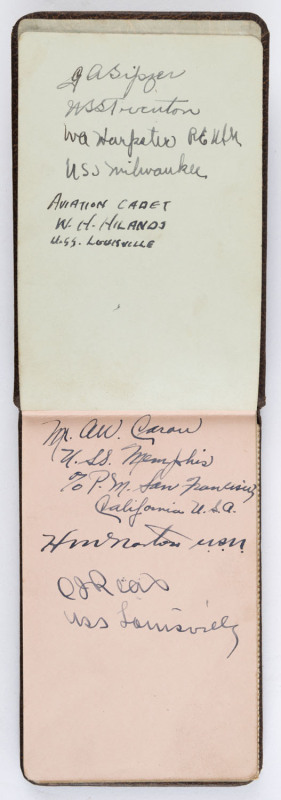 J A Sipzer
USS Trenton
W a Harpster
USS Milwaukee
AVIATION CADET
W. H. HILANDS
U.S.S. LOUISVILLE
Mr. A.W. Caron
U.S.S. Memphis
c/o P.M. San Francisco
California U.S.A.
U.S.N.
USS Louisville